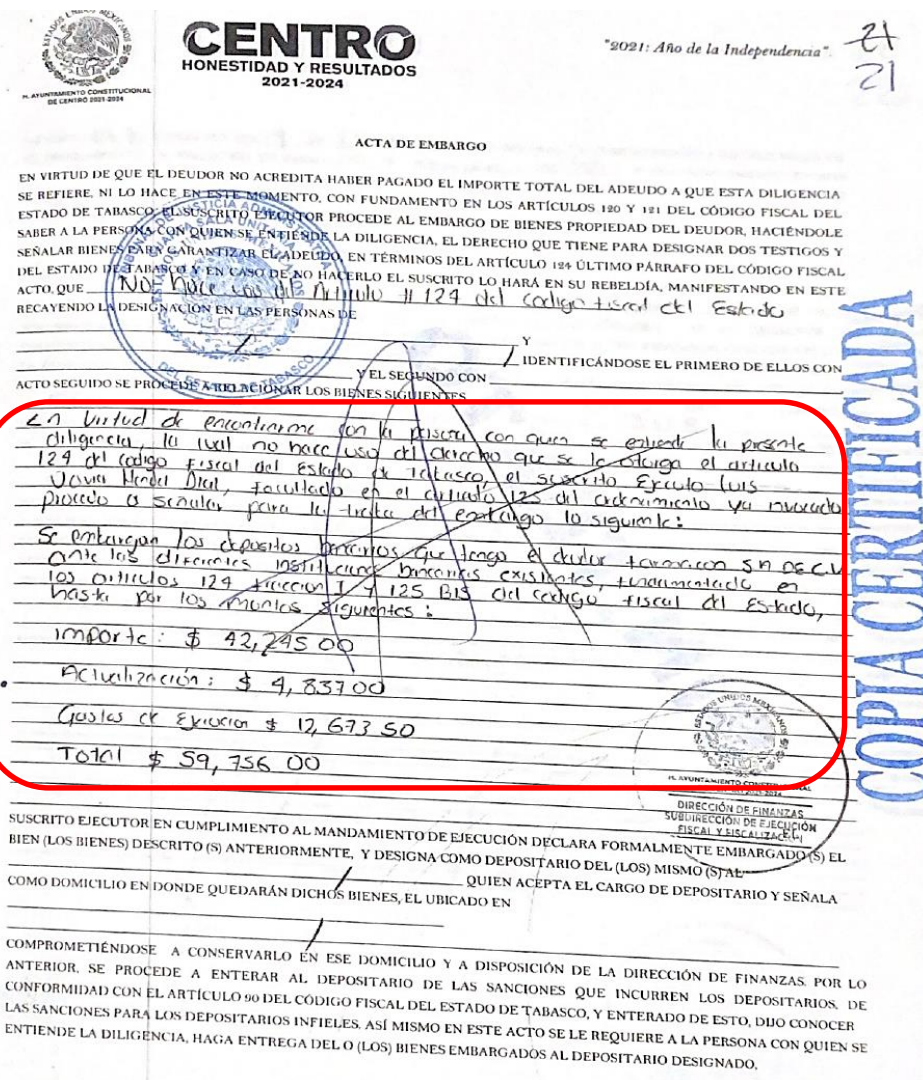 ESTADOS UNIDOS MEXICANOS
H. AYUNTAMIENTO CONSTITUCIONAL
DE CENTRO 2021-2024
CENTRO
HONESTIDAD Y RESULTADOS
2021-2024
"2021: Año de la Independencia".
21
21
ACTA DE EMBARGO
EN VIRTUD DE QUE EL DEUDOR NO ACREDITA HABER PAGADO EL IMPORTE TOTAL DEL ADEUDO A QUE ESTA DILIGENCIA
SE REFIERE, NI LO HACE EN ESTE MOMENTO, CON FUNDAMENTO EN LOS ARTÍCULOS 120 Y 121 DEL CÓDIGO FISCAL DEL
ESTADO DE TABASCO, EL SUSCRITO EJECUTOR PROCEDE AL EMBARGO DE BIENES PROPIEDAD DEL DEUDOR, HACIÉNDOLE
SABER A LA PERSONA CON QUIEN SE ENTIENDE LA DILIGENCIA, EL DERECHO QUE TIENE PARA DESIGNAR DOS TESTIGOS Y
SEÑALAR BIENES PARA GARANTIZAR EL ADEUDO, EN TÉRMINOS DEL ARTÍCULO 124 ÚLTIMO PÁRRAFO DEL CÓDIGO FISCAL
DEL ESTADO DE TABASCO Y EN CASO DE NO HACERLO EL SUSCRITO LO HARÁ EN SU REBELDÍA, MANIFESTANDO EN ESTE
ACTO, QUE No hace uso del Articulo # 124 del codigo fiscal del Estado
RECAYENDO LA DESIGNACIÓN EN LAS PERSONAS DE
Y
IDENTIFICÁNDOSE EL PRIMERO DE ELLOS CON
Y EL SEGUNDO CON
ACTO SEGUIDO SE PROCEDE A RELACIONAR LOS BIENES SIGUIENTES
En virtud de encontrarme con la persona con quien se entiende la presente
diligencia, la cual no hace uso del derecho que se le otorga el articulo
124 del codigo fiscal del Estado de Tabasco, el suscrito Ejecutor Luis
Javier Diaz, facultado en el articulo 125 del ordenamiento ya invocado
procedo a señalar para la traba del embargo lo siguiente:
Se embargan los depositos bancarios que tenga el deudor SA DE C.V
ante las diferentes instituciones bancarias existentes, fundamentado en
los articulos 124 fraccion I y 125 BIS del codigo fiscal del Estado,
hasta por los montos siguientes:
importe: $ 42,245 00
Actualización: $ 4,837 00
Gastos de Ejecucion $ 12,673 50
Total $ 59,756 00
ESTADOS UNIDOS MEXICANOS
H. AYUNTAMIENTO CONSTITUCIONAL
DIRECCIÓN DE FINANZAS
SUBDIRECCIÓN DE EJECUCIÓN
FISCAL Y FISCALIZACIÓN
EL
SUSCRITO EJECUTOR EN CUMPLIMIENTO AL MANDAMIENTO DE EJECUCIÓN DECLARA FORMALMENTE EMBARGADO (S) EL
BIEN (LOS BIENES) DESCRITO (S) ANTERIORMENTE, Y DESIGNA COMO DEPOSITARIO DEL (LOS) MISMO (S) AL
QUIEN ACEPTA EL CARGO DE DEPOSITARIO Y SEÑALA
COMO DOMICILIO EN DONDE QUEDARÁN DICHOS BIENES, EL UBICADO EN
COMPROMETIÉNDOSE A CONSERVARLO EN ESE DOMICILIO Y A DISPOSICIÓN DE LA DIRECCIÓN DE FINANZAS. POR LO
ANTERIOR, SE PROCEDE A ENTERAR AL DEPOSITARIO DE LAS SANCIONES QUE INCURREN LOS DEPOSITARIOS, DE
CONFORMIDAD CON EL ARTÍCULO 90 DEL CÓDIGO FISCAL DEL ESTADO DE TABASCO, Y ENTERADO DE ESTO, DIJO CONOCER
LAS SANCIONES PARA LOS DEPOSITARIOS INFIELES. ASÍ MISMO EN ESTE ACTO SE LE REQUIERE A LA PERSONA CON QUIEN SE
ENTIENDE LA DILIGENCIA, HAGA ENTREGA DEL O (LOS) BIENES EMBARGADOS AL DEPOSITARIO DESIGNADO.
COPIA CERTIFICADA